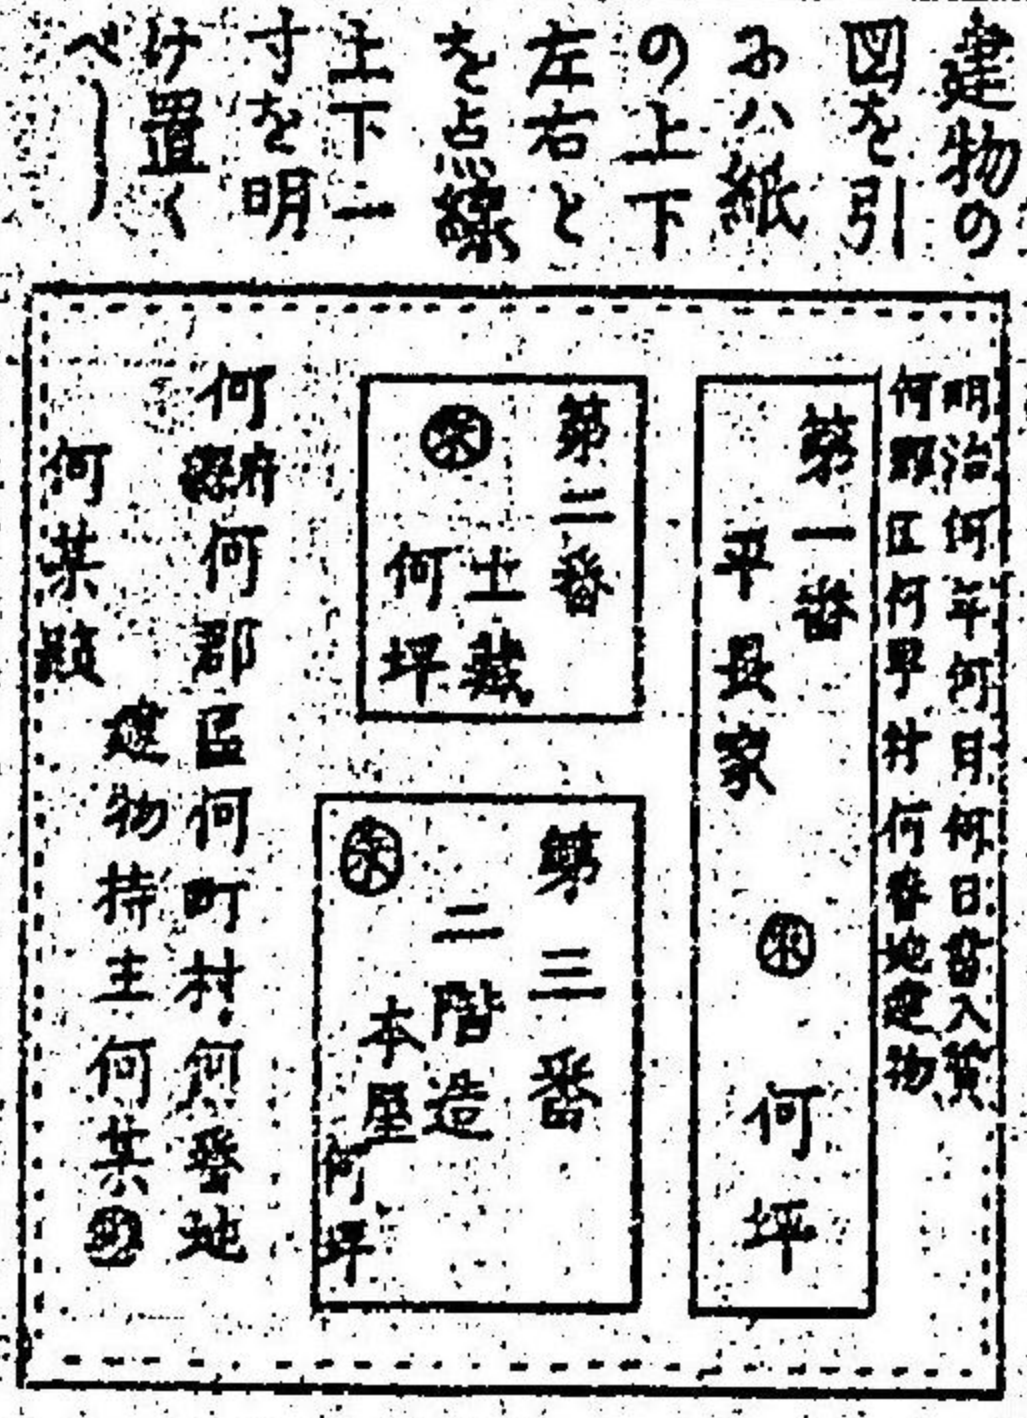 建物の
図を引
にハ紙
の上下
左右と
を点線
上下一
寸を明
け置く
べし
明治何年何月何日書入質
何郡区何町村何番地建物
第一番
平長家
何坪
第二番
土蔵
何坪
第三番
二階造
本屋
何坪
何府縣何郡區何町村何番地
建物持主何某㊞
何某殿